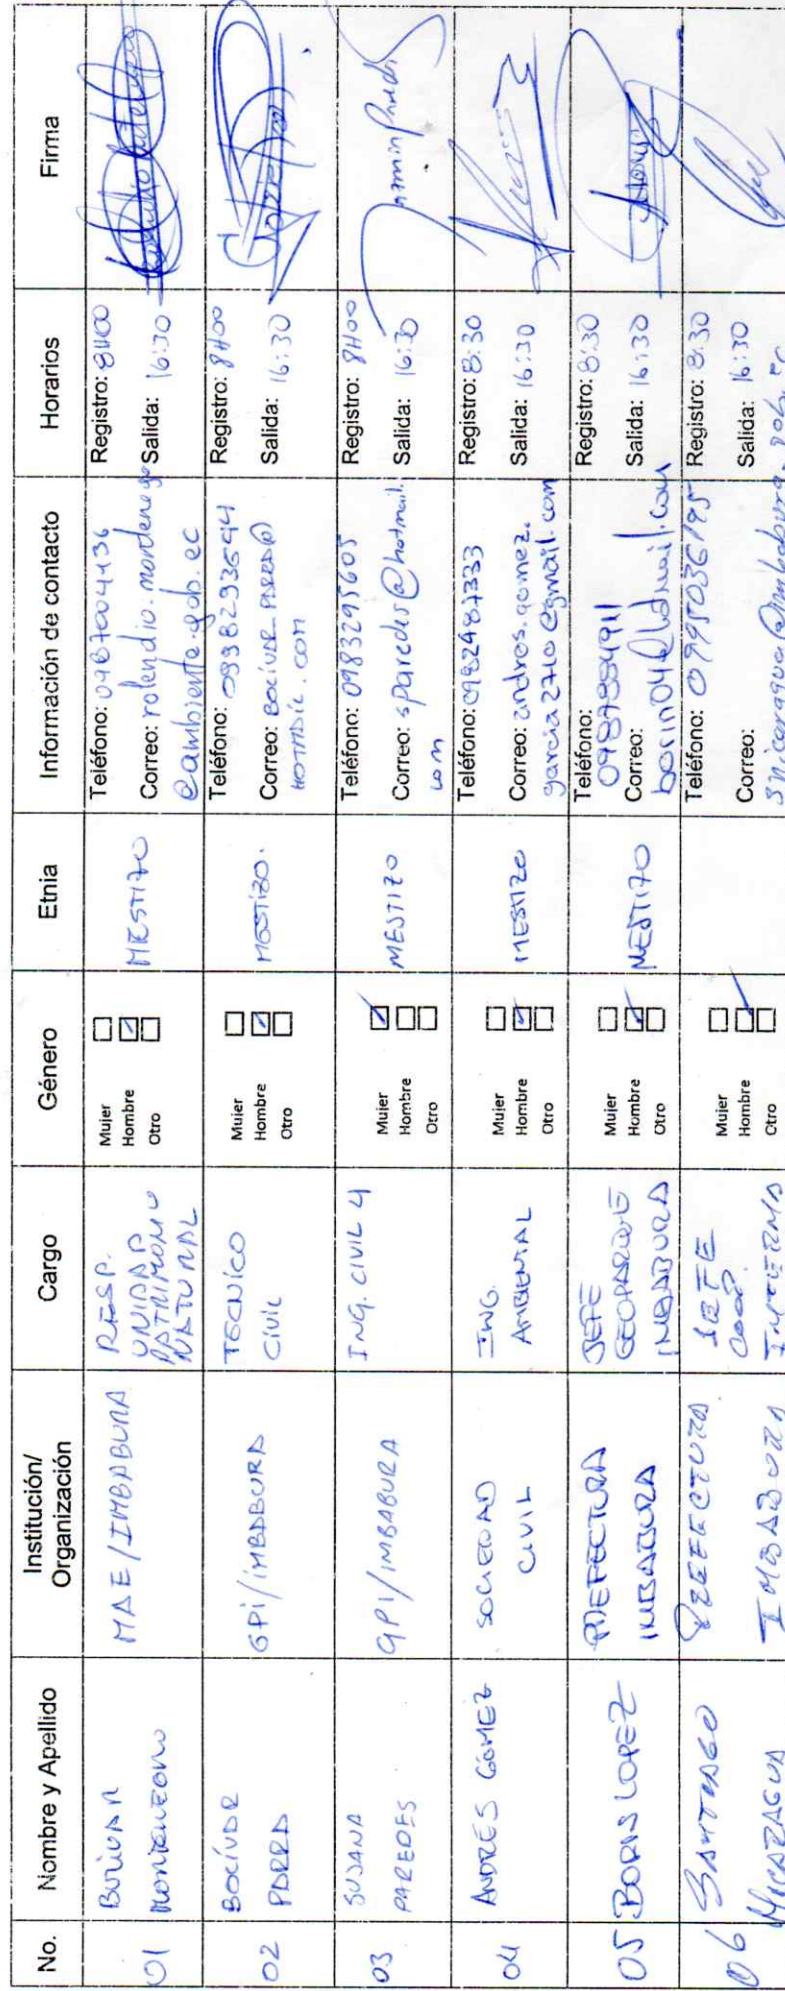 No. Nombre y Apellido Institución/ Organización Cargo Género Etnia Información de contacto Horarios Firma
01
Bolivar
Montenegro
MAE/IMBABURA
RESP.
UNIDAD
PATRIMONIO
NATURAL
Mujer
Hombre
Otro
MESTIZO
Teléfono: 0987004136
Correo: rolendio.montenegro
@ambiente.gob.ec
Registro: 8H00
Salida: 16:30
02
BOLÍVAR
PARRA
GPI/IMBABURA
TECNICO
CIVIL
Mujer
Hombre
Otro
MESTIZO.
Teléfono: 0998293644
Correo: BOLIVAR_PARRA@
HOTMAIL.COM
Registro: 8H00
Salida: 16:30
03
SUSANA
PAREDES
GPI/IMBABURA
ING. CIVIL 4
Mujer
Hombre
Otro
MESTIZO
Teléfono: 0983295605
Correo: sparedes@hotmail.
com
Registro: 8H00
Salida: 16:30
04
ANDRÉS GÓMEZ
SOCIEDAD
CIVIL
ING.
AMBIENTAL
Mujer
Hombre
Otro
MESTIZO
Teléfono: 0982487333
Correo: andres.gomez.
garcia2710@gmail.com
Registro: 8:30
Salida: 16:30
05
BORIS LOPEZ
PREFECTURA
IMBABURA
JEFE
GEOPARQUE
IMBABURA
Mujer
Hombre
Otro
MESTIZO
Teléfono:
0987884911
Correo:
borin04@hotmail.com
Registro: 8:30
Salida: 16:30
06
SANTIAGO
NICARAGUA
PREFECTURA
IMBABURA
JEFE
COOP.
INTERNA
Mujer
Hombre
Otro
Teléfono: 0995036195
Correo:
snicaragua@imbabura.gob.ec
Registro: 8:30
Salida: 16:30